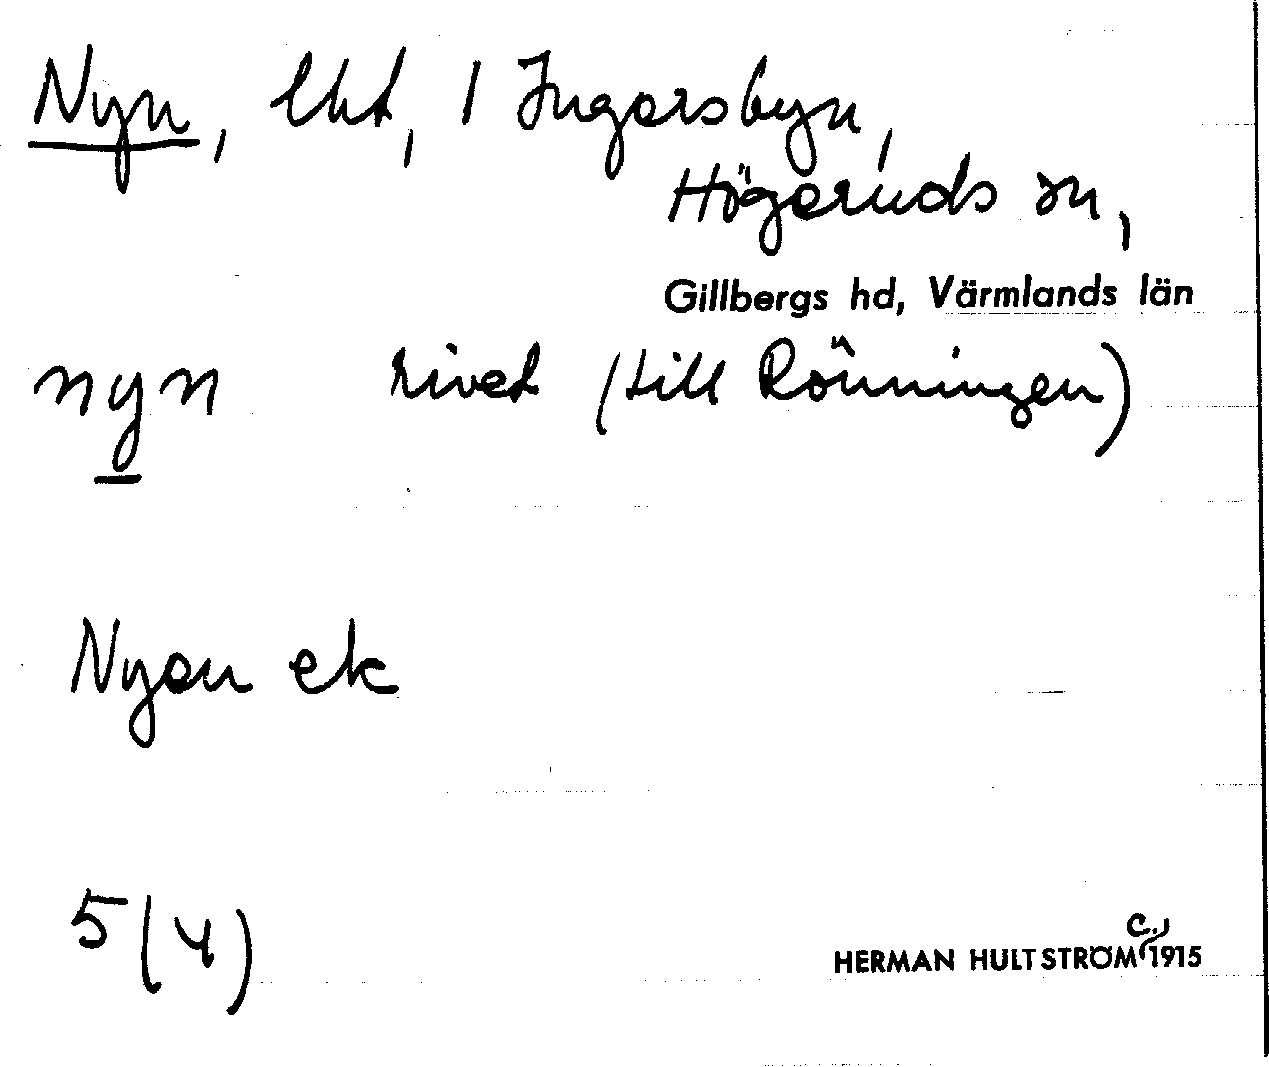 Nyn, lht, 1 Ingersbyn,
Högeruds sn,
Gillbergs hd, Värmlands län
nyn rivet (till Rönningen)
Nyen ek
5 (4)
c.
HERMAN HULTSTRÖM 1915